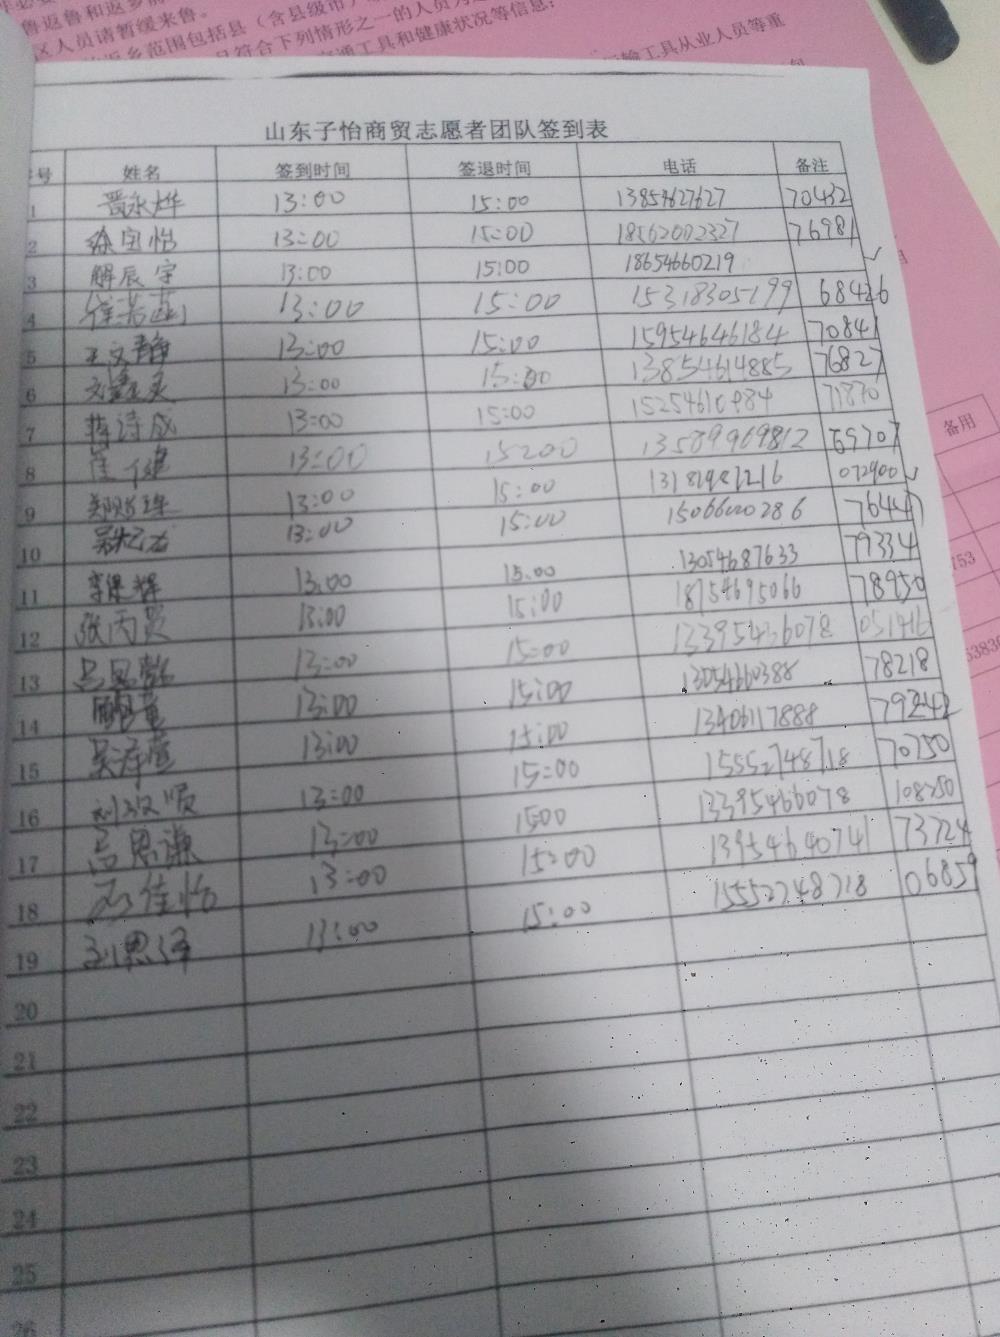 鲁返鲁和返乡
区人员请暂缓来鲁。
返乡范围包括县（含县级市）
符合下列情形之一的人员
通工具和健康状况等信息：
输工具从业人员等重
山东子怡商贸志愿者团队签到表
号 姓名 签到时间 签退时间 电话 备注
1 晋永烨 13:00 15:00 13854627627 70432
2 徐宝怡 13:00 15:00 18562002327 76981
3 解辰宇 13:00 15:00 18654660219
4 徐若菡 13:00 15:00 15318305199 68426
5 王文静 13:00 15:00 15954646184 70841
6 刘鑫昊 13:00 15:00 13854614885 76827
7 蒋诗成 13:00 15:00 15254610984 71870
8 崔健 13:00 15:00 13589969812 69707
9 13:00 15:00 13181981216 072900
10 13:00 15:00 15066000286 7644
11 李果辉 13:00 15:00 13054687633 79334
12 张丙贤 13:00 15:00 18754695066 78950
13 13:00 15:00 13395436078 051416
14 13:00 15:00 13054660388 78218
15 吴泽萱 13:00 15:00 13406117888 79242
16 刘政顺 13:00 15:00 15552748718 70750
17 吕思谦 13:00 1500 13395466078 108250
18 石佳怡 13:00 15:00 13954640741 73724
19 刘思泽 13:00 15:00 15552748718 06859
20
21
22
23
24
25
26
备用
153